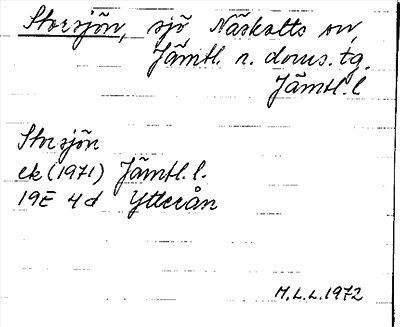 Storsjön, sjö Näskotts sn,
Jämtl. n. doms. tg.
Jämtl. l
Storsjön
ek (1971) Jämtl. l.
19E 4d Ytterån
M.L.L. 1972